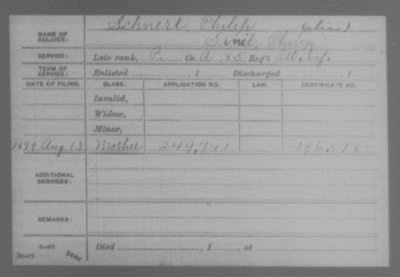 NAME OF SOLDIER: Schnert, Philip (alias)
Smit, Philip
SERVICE: Late rank, P. Co. A, 83 Reg't Ills. Inf.
TERM OF SERVICE: Enlisted , 1 Discharged , 1
DATE OF FILING. CLASS. APPLICATION NO. LAW. CERTIFICATE NO.
Invalid,
Widow,
Minor,
1879 Aug. 13 Mother 249,741
ADDITIONAL SERVICES:
REMARKS:
Died , 1 , at